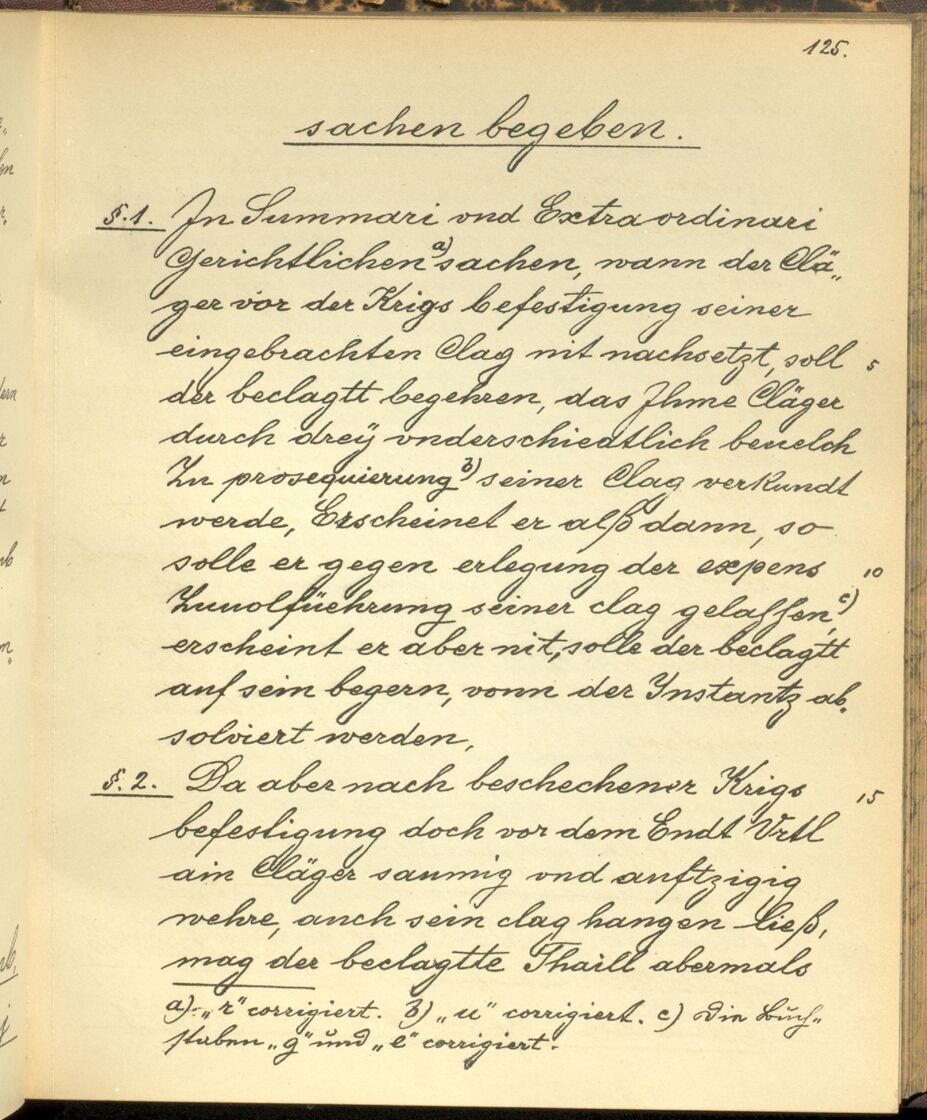 125.
sachen begeben.
§.1. In Summari vnd Extraordinari
Gerichtlichen a) sachen, wann der Clä„
ger vor der Krigs befestigung seiner
eingebrachten Clag nit nachsetzt, soll 5
der beclagtt begehren, das Ihme Cläger
durch dreÿ vnderschiedtlich beuelch
Zu prosequierung b) seiner Clag verkundt
werde, Erscheinet er alß dann, so
solle er gegen erlegung der expens 10
Zuuolfüehrung seiner clag gelassen, c)
erscheint er aber nit, solle der beclagtt
auf sein begern, vonn der Instantz ab„
solviert werden,
§.2. Da aber nach beschechener Krigs 15
befestigung doch vor dem Endt Vrtl
ain Cläger saumig vnd auftzigig
wehre, auch sein clag hangen ließ,
mag der beclagtte Thaill abermals
a) „r" corrigiert. b) „u" corrigiert. c) Die Buch„
staben „g" und „e" corrigiert.